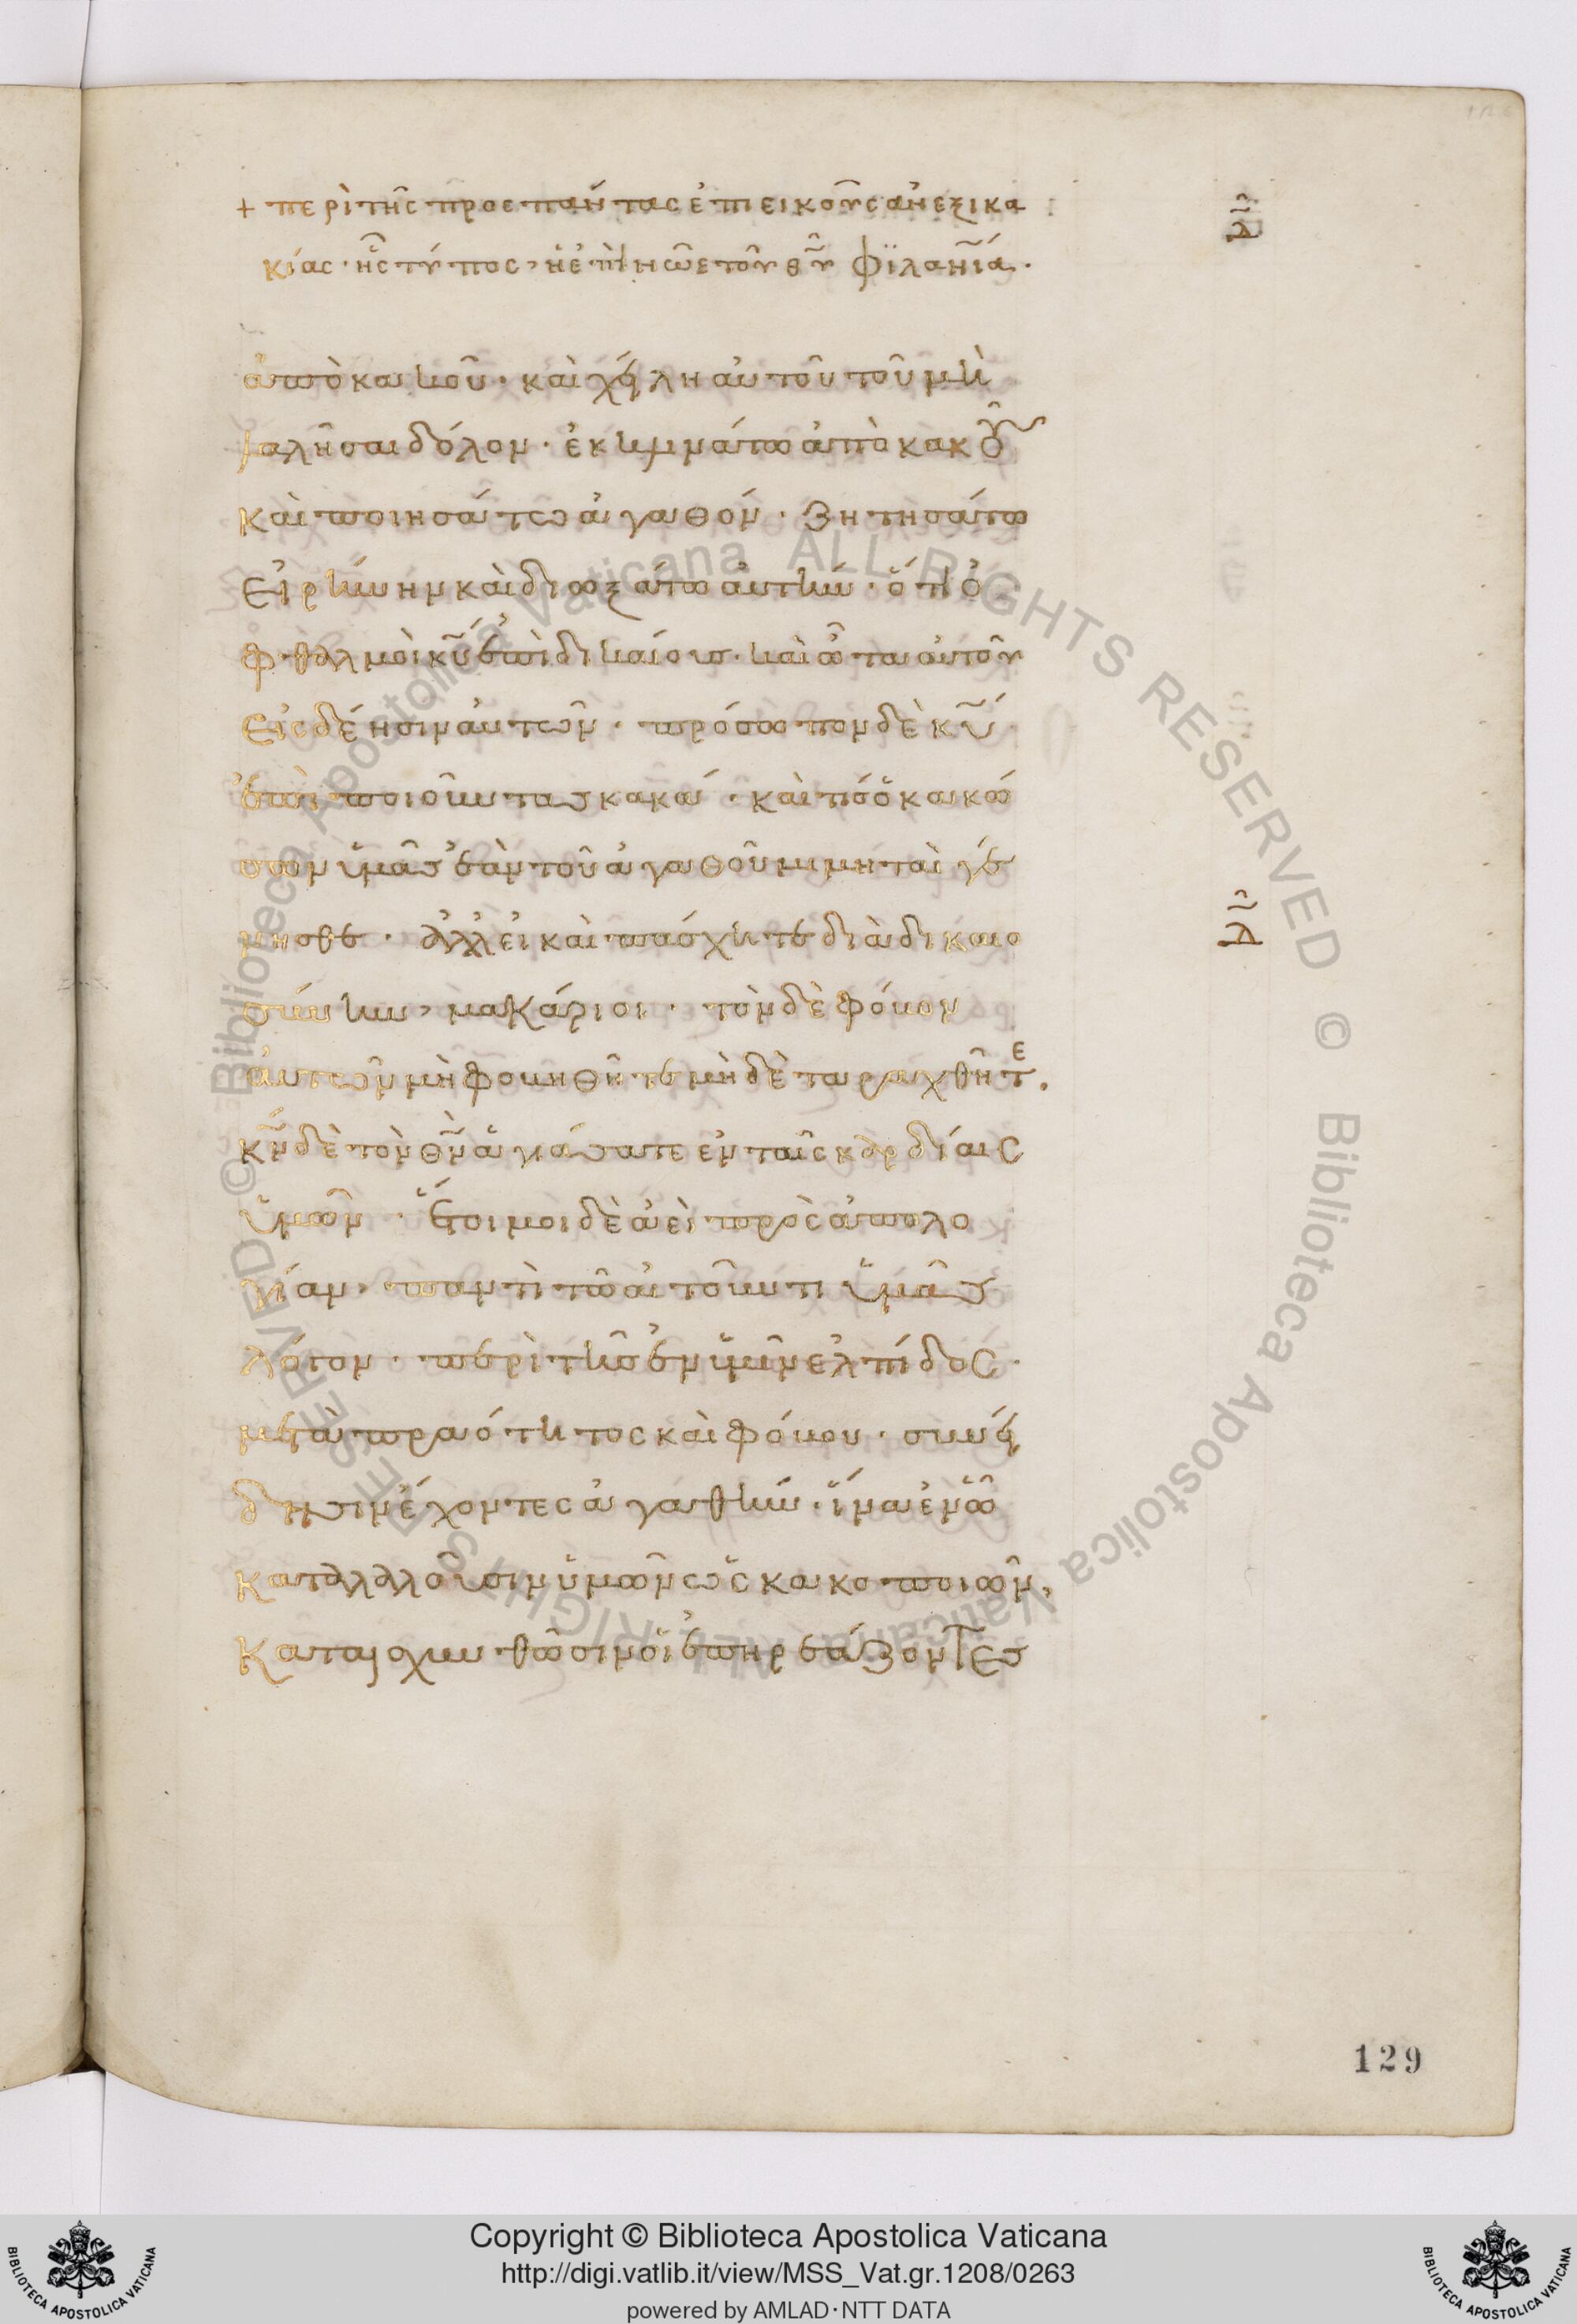 + περὶ τῆς προς πάντας ἐπιεικοῦς ἀνεξικα
κίας · ἧς τύπος, ἡ ἐπὶ νῶε τοῦ θ̅υ̅ φϊλανι̅α̅ ·
ἀπὸ κακοῦ · καὶ χείλη αὐτοῦ τοῦ μὴ
λαλῆσαι δόλον · ἐκκλινάτω ἀπὸ κακοῦ
καὶ ποιησάτω ἀγαθόν · ζητησάτω
εἰρήνην καὶ διωξάτω αὐτήν · ὅτι ὀ
φθαλμοὶ κ̅υ̅ ἐπὶ δικαίους · καὶ ὦτα αὐτοῦ
εἰς δέησιν αὐτῶν · πρόσωπον δὲ κ̅υ̅
ἐπὶ ποιοῦντας κακά · καὶ τίς ὁ κακώ
σων ὑμᾶς ἐὰν τοῦ ἀγαθοῦ μιμηταὶ γέ
νησθε · ἀλλ εἰ καὶ πάσχητε διὰ δικαιο
σύνην, μακάριοι · τὸν δὲ φόβον
αὐτῶν μὴ φοβηθῆτε μὴδὲ ταραχθῆτε ·
κ̅ν̅ δὲ τὸν θ̅ν̅ ἁγιάσατε ἐν ταῖς καρδίαις
ὑμῶν · ἕτοιμοι δὲ ἀεὶ πρὸς ἀπολο
γίαν, παντὶ τῶ αἰτοῦντι ὑμᾶς
λόγον · περὶ τῆς ἐν ὑμῖν ἐλπίδος ·
μετὰ πραότητος καὶ φόβου · συνεί
δησιν ἔχοντες ἀγαθήν · ἵνα ἐν ὧ
καταλαλοῦσιν ὑμῶν ὡς κακοποιῶν,
καταισχυνθῶσιν οἱ ἐπηρεάζοντες
129
Copyright © Biblioteca Apostolica Vaticana
http://digi.vatlib.it/view/MSS_Vat.gr.1208/0263
powered by AMLAD·NTT DATA
© Biblioteca Apostolica Vaticana ALL RIGHTS RESERVED © Biblioteca Apostolica Vaticana ALL RIGHTS RESERVED
BIBLIOTECA APOSTOLICA VATICANA
BIBLIOTECA APOSTOLICA VATICANA